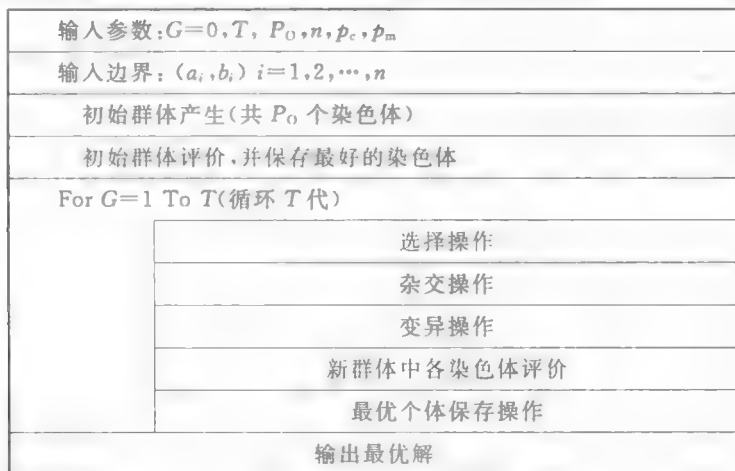 输入参数:G=0,T, P₀,n,p_c,p_m
输入边界: (a_i,b_i) i=1,2,…,n
初始群体产生(共 P₀ 个染色体)
初始群体评价,并保存最好的染色体
For G=1 To T(循环 T 代)
选择操作
杂交操作
变异操作
新群体中各染色体评价
最优个体保存操作
输出最优解